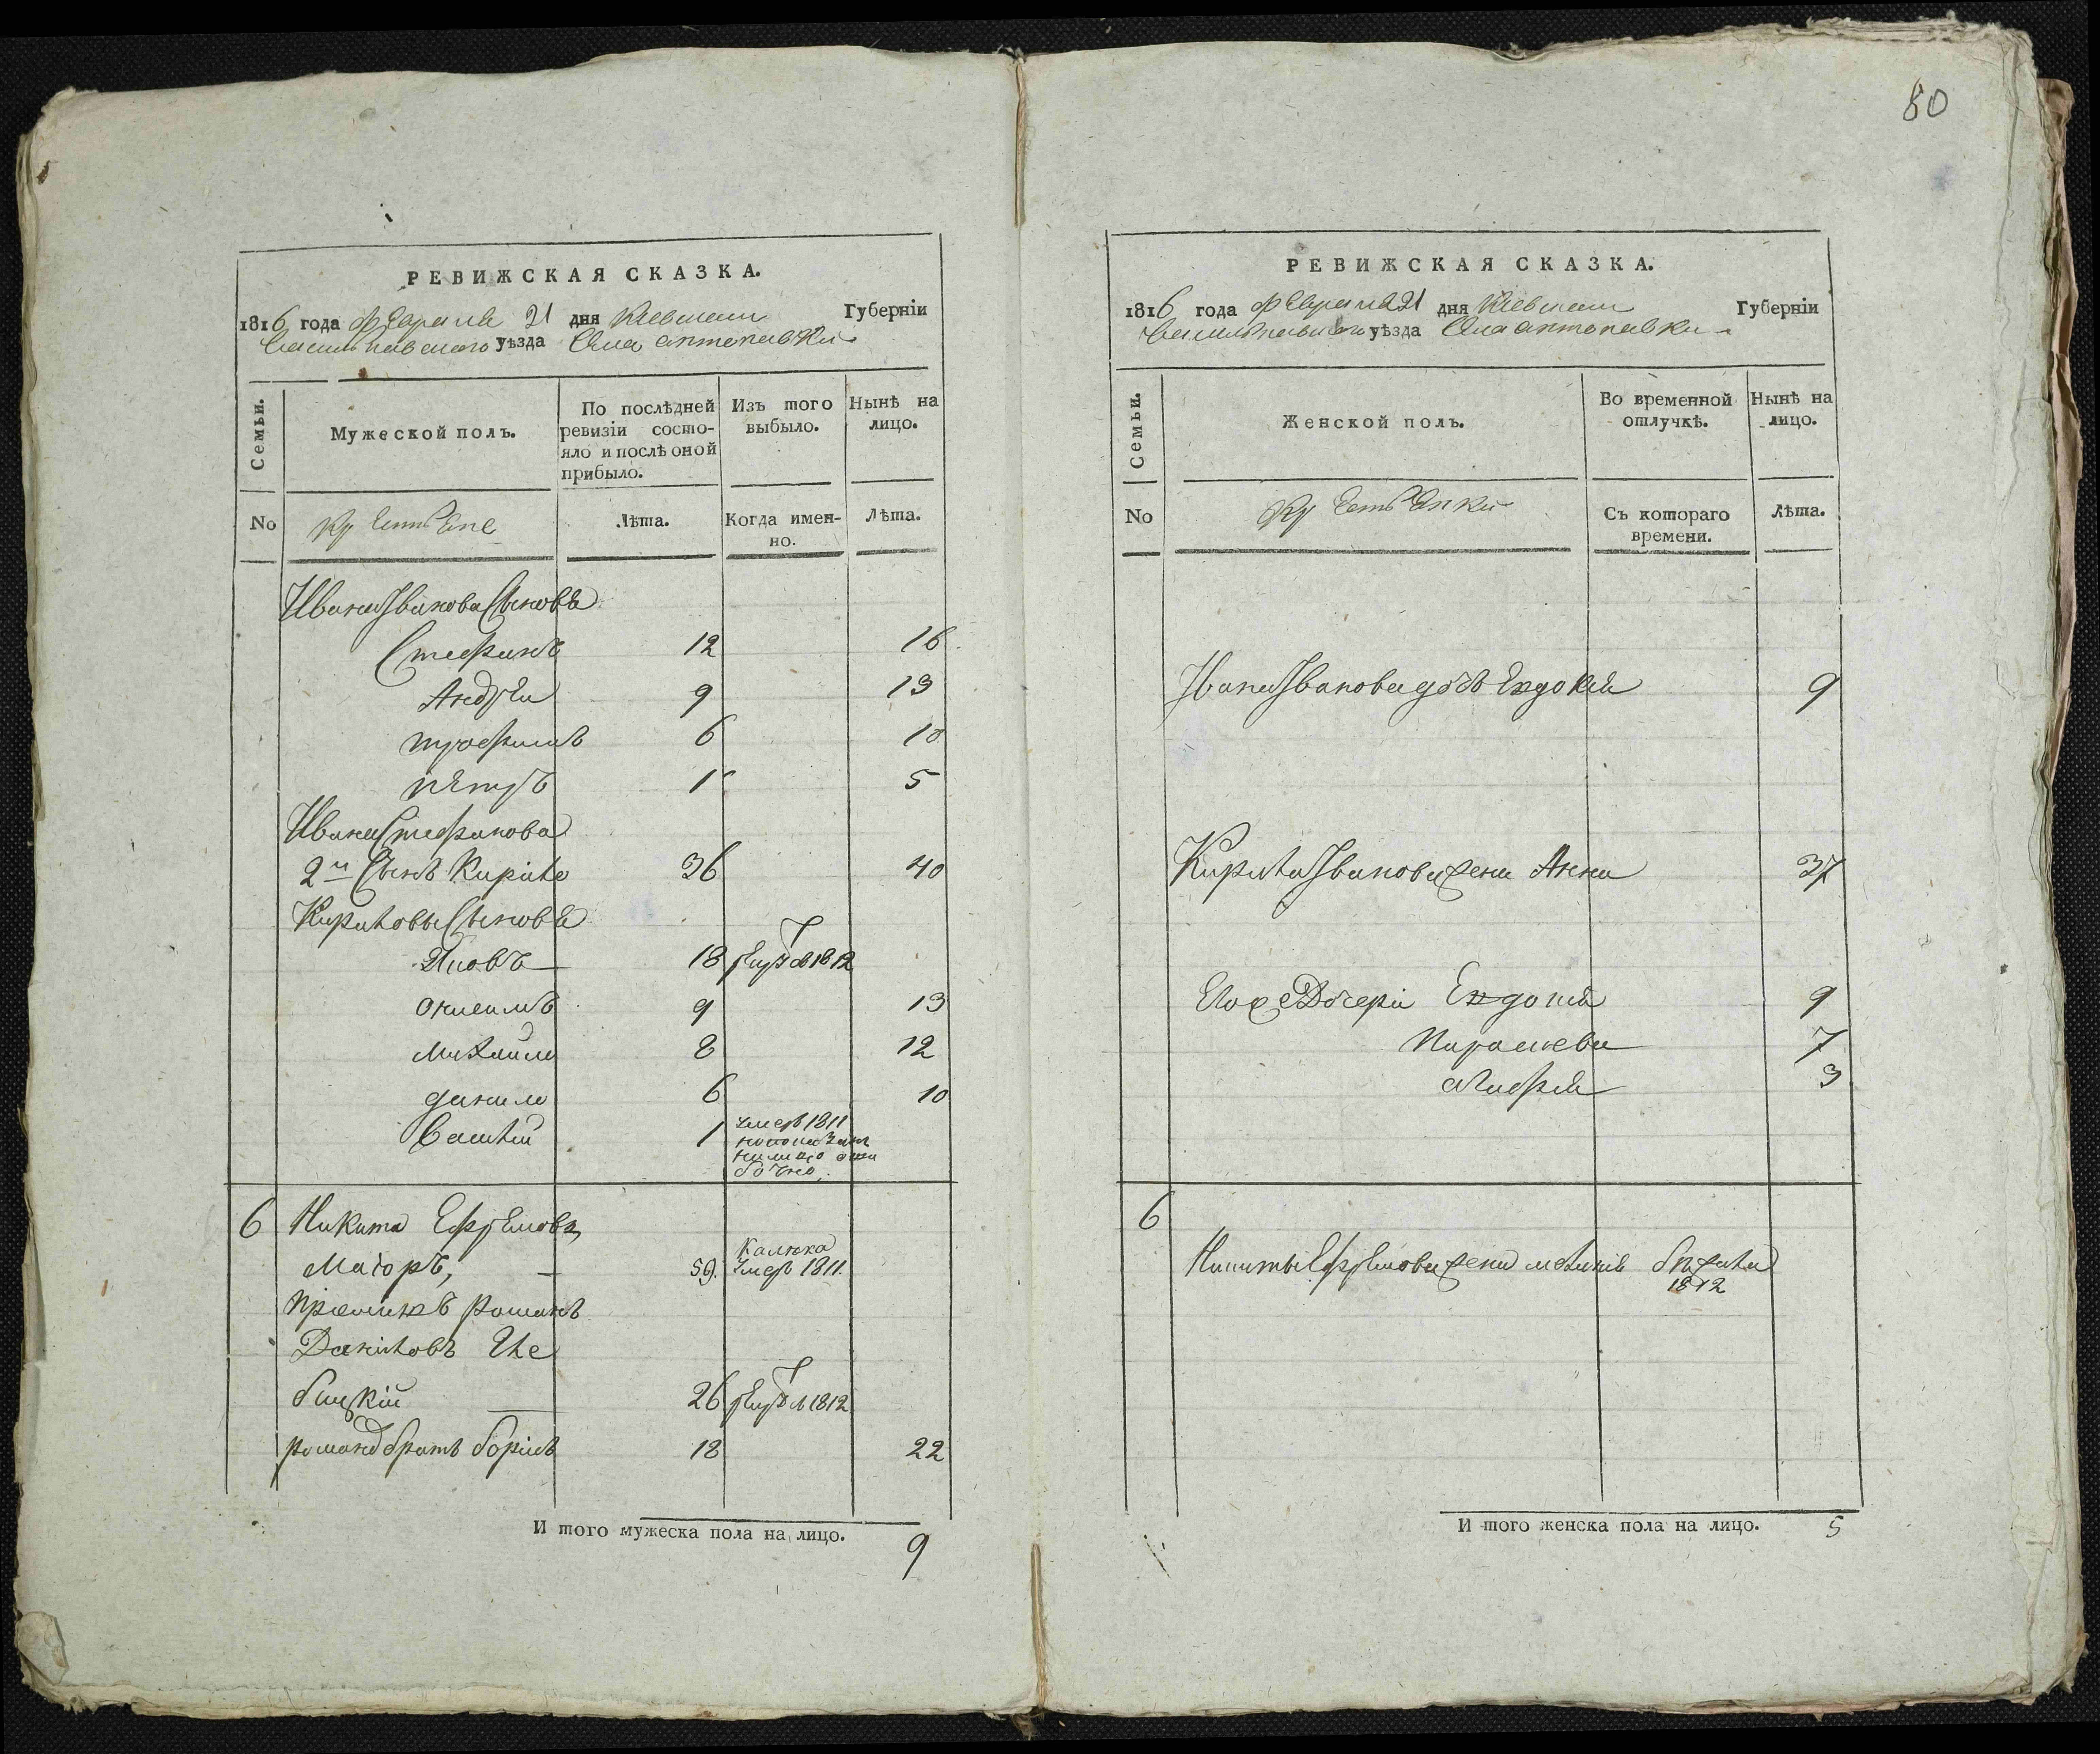 80
РЕВИЖСКАЯ СКАЗКА.
1816 года Февраля 21 дня Киевской Губерніи
Васильковского уѣзда Села антоновки
Семьи.
Мужеской полъ.
По послѣдней ревизіи состо-
яло и послѣ оной прибыло.
Изъ того выбыло.
Нынѣ на лицо.
No
Крестьяне
Лѣта.
Когда имен-
но.
Лѣта.
Ивана Иванова Сыновья
Стефанъ 12 16
Андрей 9 13
трофимъ 6 10
петръ 1 5
Ивана Стефанова
2й Сынъ Кирило 36 40
Кириловы Сыновья
Яковъ 18 1812
онисимъ 9 13
Михайло 8 12
данило 6 10
Василій 1 умеръ 1811
6 Никита Ефремовъ
Маіоръ, 59. Калюка умеръ 1811.
пріемышъ романъ
Даниловъ
26 1812
романа братъ борисъ 18 22
И того мужеска пола на лицо. 9
РЕВИЖСКАЯ СКАЗКА.
1816 года Февраля 21 дня Киевской Губерніи
Васильковского уѣзда Села антоновки
Семьи.
Женской полъ.
Во временной отлучкѣ.
Нынѣ на лицо.
No
Крестьянки
Съ котораго времени.
Лѣта.
Ивана Иванова дочь Евдокия 9
Кирила Иванова жена Анна 37
Его же Дочери Евдокия 9
Параскева 7
3
6
Никиты Ефремова жена бѣжала
1812
И того женска пола на лицо. 5